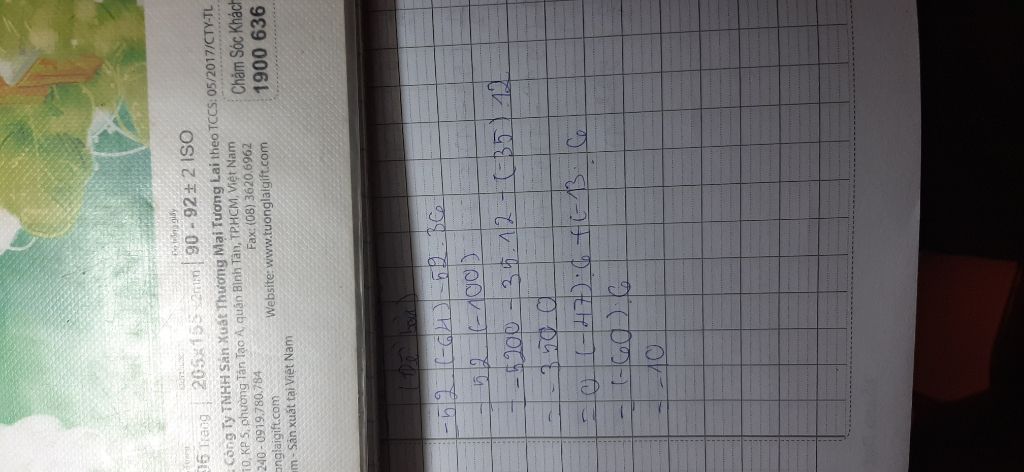 Độ trắng giấy
96 Trang 205x155±2mm 90 - 92 ± 2 ISO
Công Ty TNHH Sản Xuất Thương Mại Tương Lai theo TCCS: 05/2017/CTY-TL
10, KP 5, phường Tân Tạo A, quận Bình Tân, TPHCM, Việt Nam
240 - 0919.780.784 Fax: (08) 3620.6962
onglaigift.com Website: www.tuonglaigift.com
m - Sản xuất tại Việt Nam
Chăm Sóc Khách
1900 636
(Đề bài)
-52 (-64) - 52 . 36
= 52 (-100)
= -5200 - 35.12 - (-35) 12
= -350 0
= 0 (-47) : 6 + (-13 : 6
= (-60) : 6
= -10